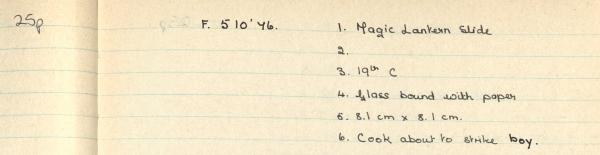 25p F. 5 10' 76. 1. Magic Lantern Slide
2.
3. 19th C
4. Glass bound with paper
5. 8.1 cm x 8.1 cm.
6. Cook about to strike boy.